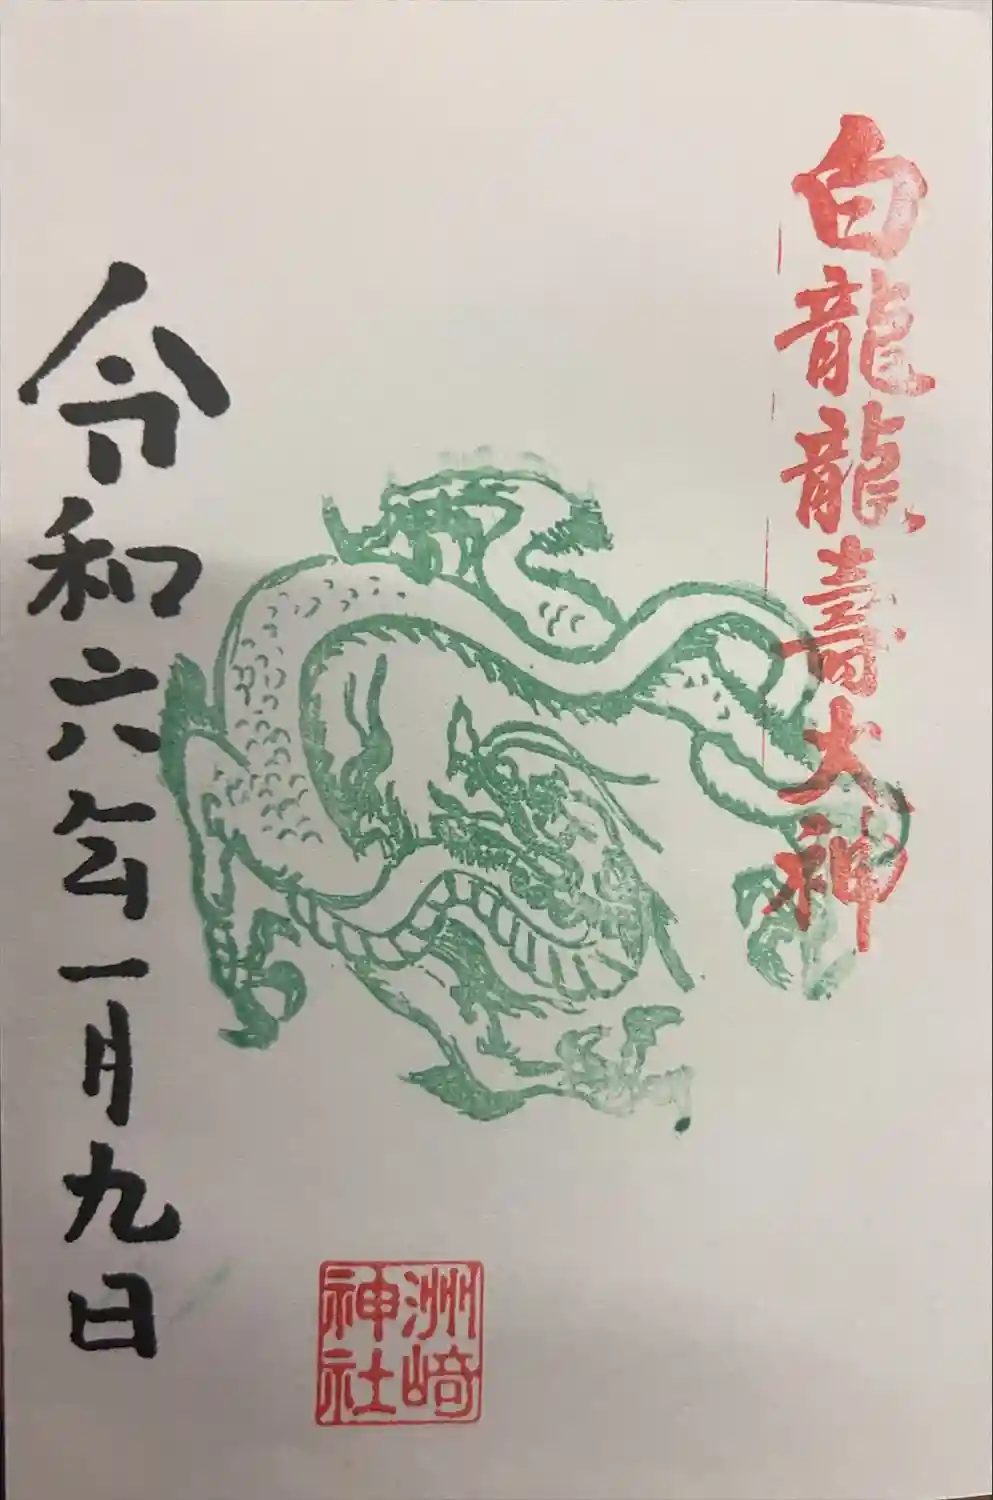 白龍龍壽大神
令和六年一月九日
洲﨑
神社